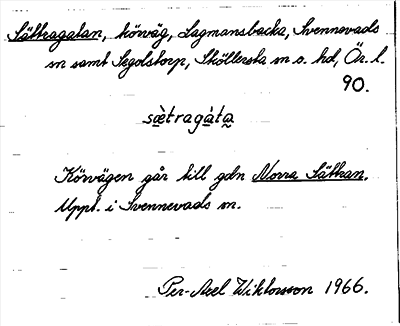 Sättragatan, körväg, Lagmansbacka, Svennevads
sn samt Segolstorp, Sköllersta sn o. hd, Ör. l.
90.
sæ̀tragàta̰
Körvägen går till gdn Norra Sättran.
Uppt. i Svennevads sn.
Per-Axel Wiktorsson 1966.